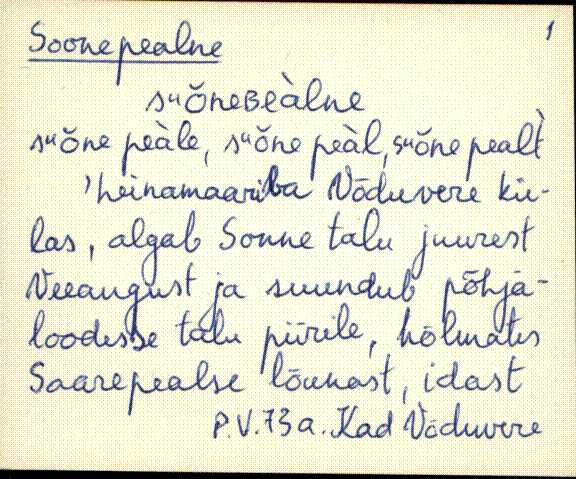 1
Soonepealne
sᵘŏneʙeàlne
sᵘŏne peàle, sᵘŏne peàl, sᵘŏne pealt̀
'heinamaariba Võduvere kü-
las, algab Sonne talu juurest
Veeaugust ja suundub põhja-
loodesse talu piirile, hõlmates
Saarepealse lõunast, idast
P.V. 73 a. Kad Võduvere